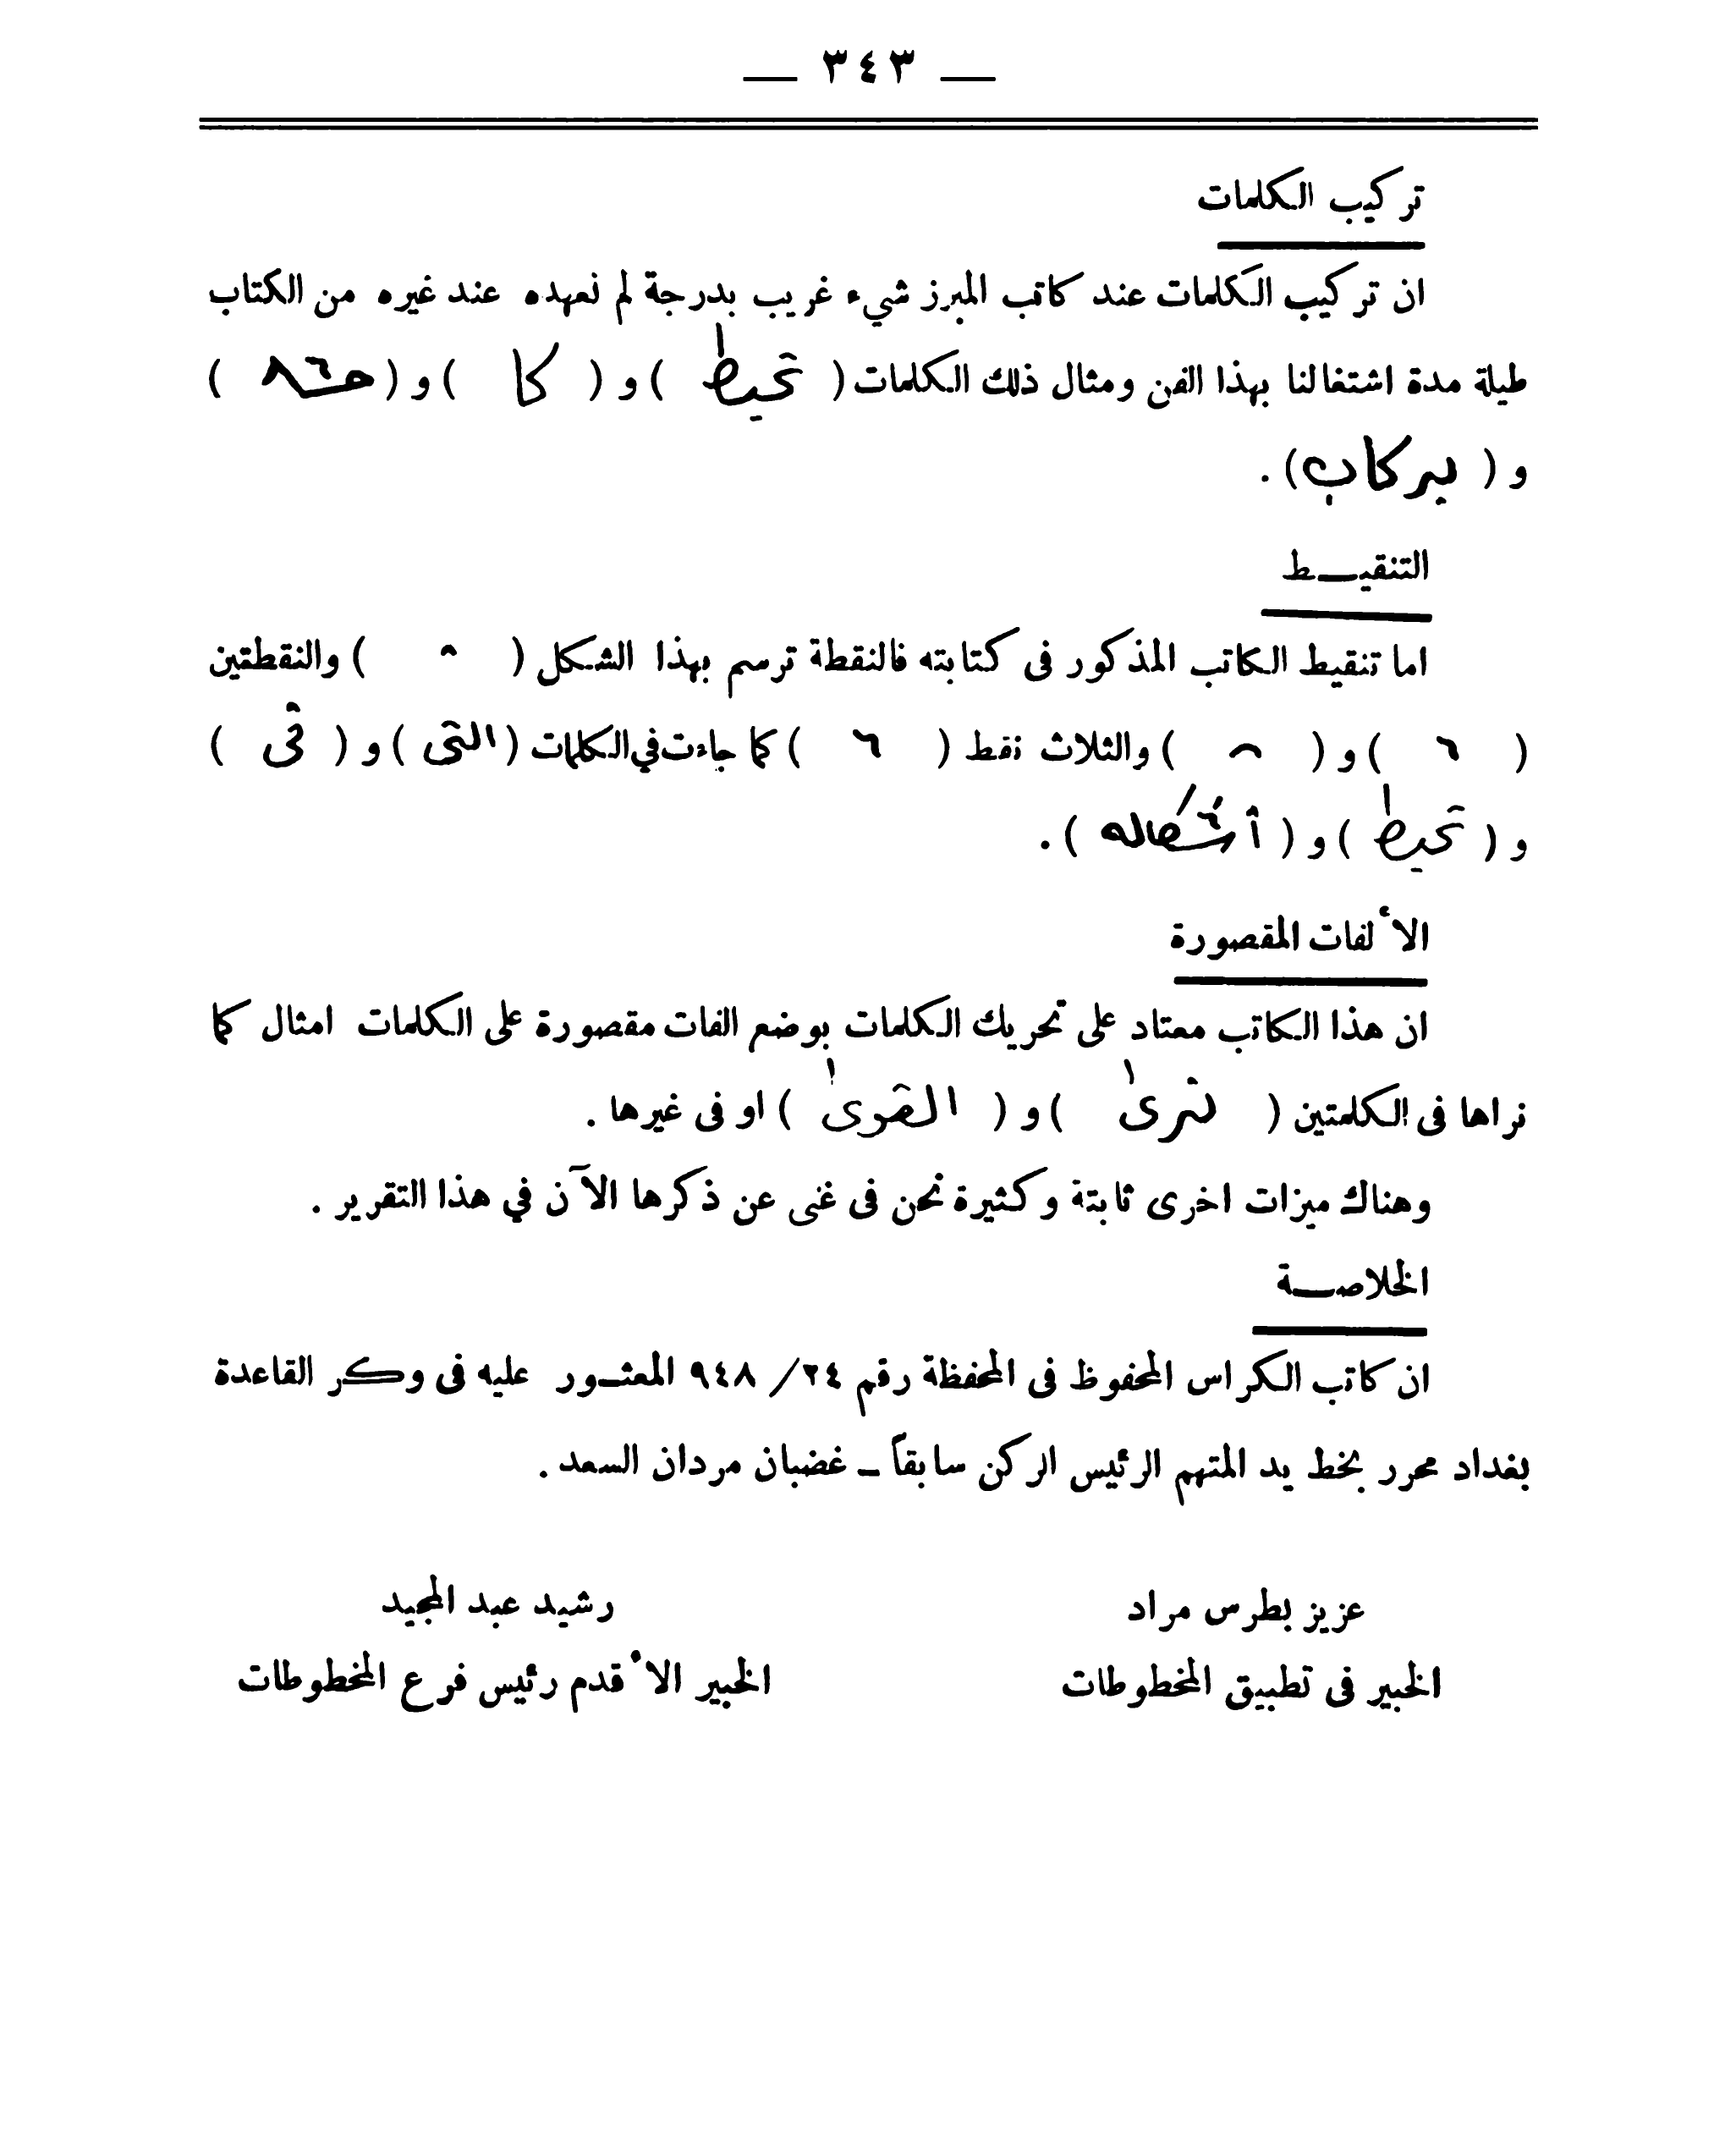 — ٣٤٣ —
تركيب الكلمات
ان تركيب الكلمات عند كاتب المبرز شيء غريب بدرجة لم نعهده عند غيره من الكتاب
طيلة مدة اشتغالنا بهذا الفن ومثال ذلك الكلمات ( تحيط ) و ( كا ) و ( )
و ( بركاب ) .
التنقيـط
اما تنقيط الكاتب المذكور فى كتابته فالنقطة ترسم بهذا الشكل ( ^ ) والنقطتين
( ٦ ) و ( ^ ) والثلاث نقط ( ٦ ) كما جاءت في الكلمات ( التى ) و ( فى )
و ( تحيط ) و ( أشكاله ) .
الألفات المقصورة
ان هذا الكاتب معتاد على تحريك الكلمات بوضع الفات مقصورة على الكلمات امثال كما
نراها فى الكلمتين ( نرىٰ ) و ( القوىٰ ) او فى غيرها .
وهناك ميزات اخرى ثابتة وكثيرة نحن فى غنى عن ذكرها الآن في هذا التقرير .
الخلاصـة
ان كاتب الكراس المحفوظ فى المحفظة رقم ٢٤/ ٩٤٨ المعثـور عليه فى وكر القاعدة
بغداد محرر بخط يد المتهم الرئيس الركن سابقاً ـ غضبان مردان السعد .
عزيز بطرس مراد
الخبير فى تطبيق المخطوطات
رشيد عبد المجيد
الخبير الأقدم رئيس فرع المخطوطات